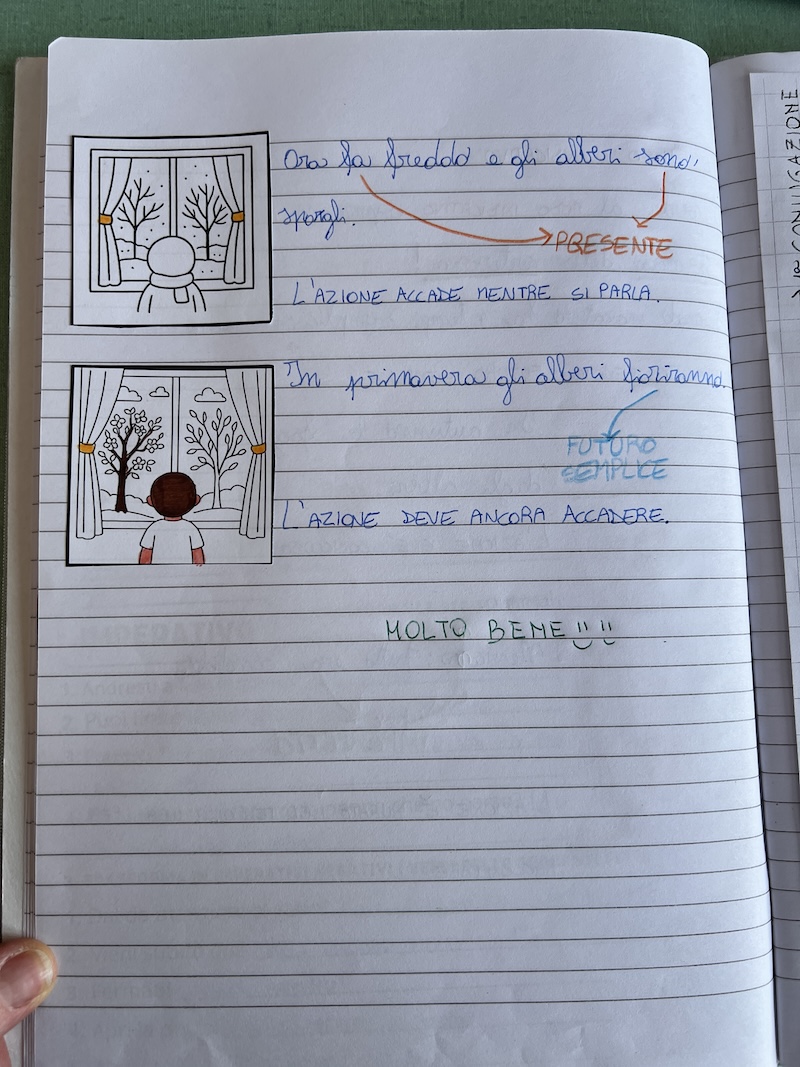 Ora fa freddo e gli alberi sono
spogli.
PRESENTE
L'AZIONE ACCADE MENTRE SI PARLA.
In primavera gli alberi fioriranno.
FUTURO
SEMPLICE
L'AZIONE DEVE ANCORA ACCADERE.
MOLTO BENE
CONIUGAZIONE